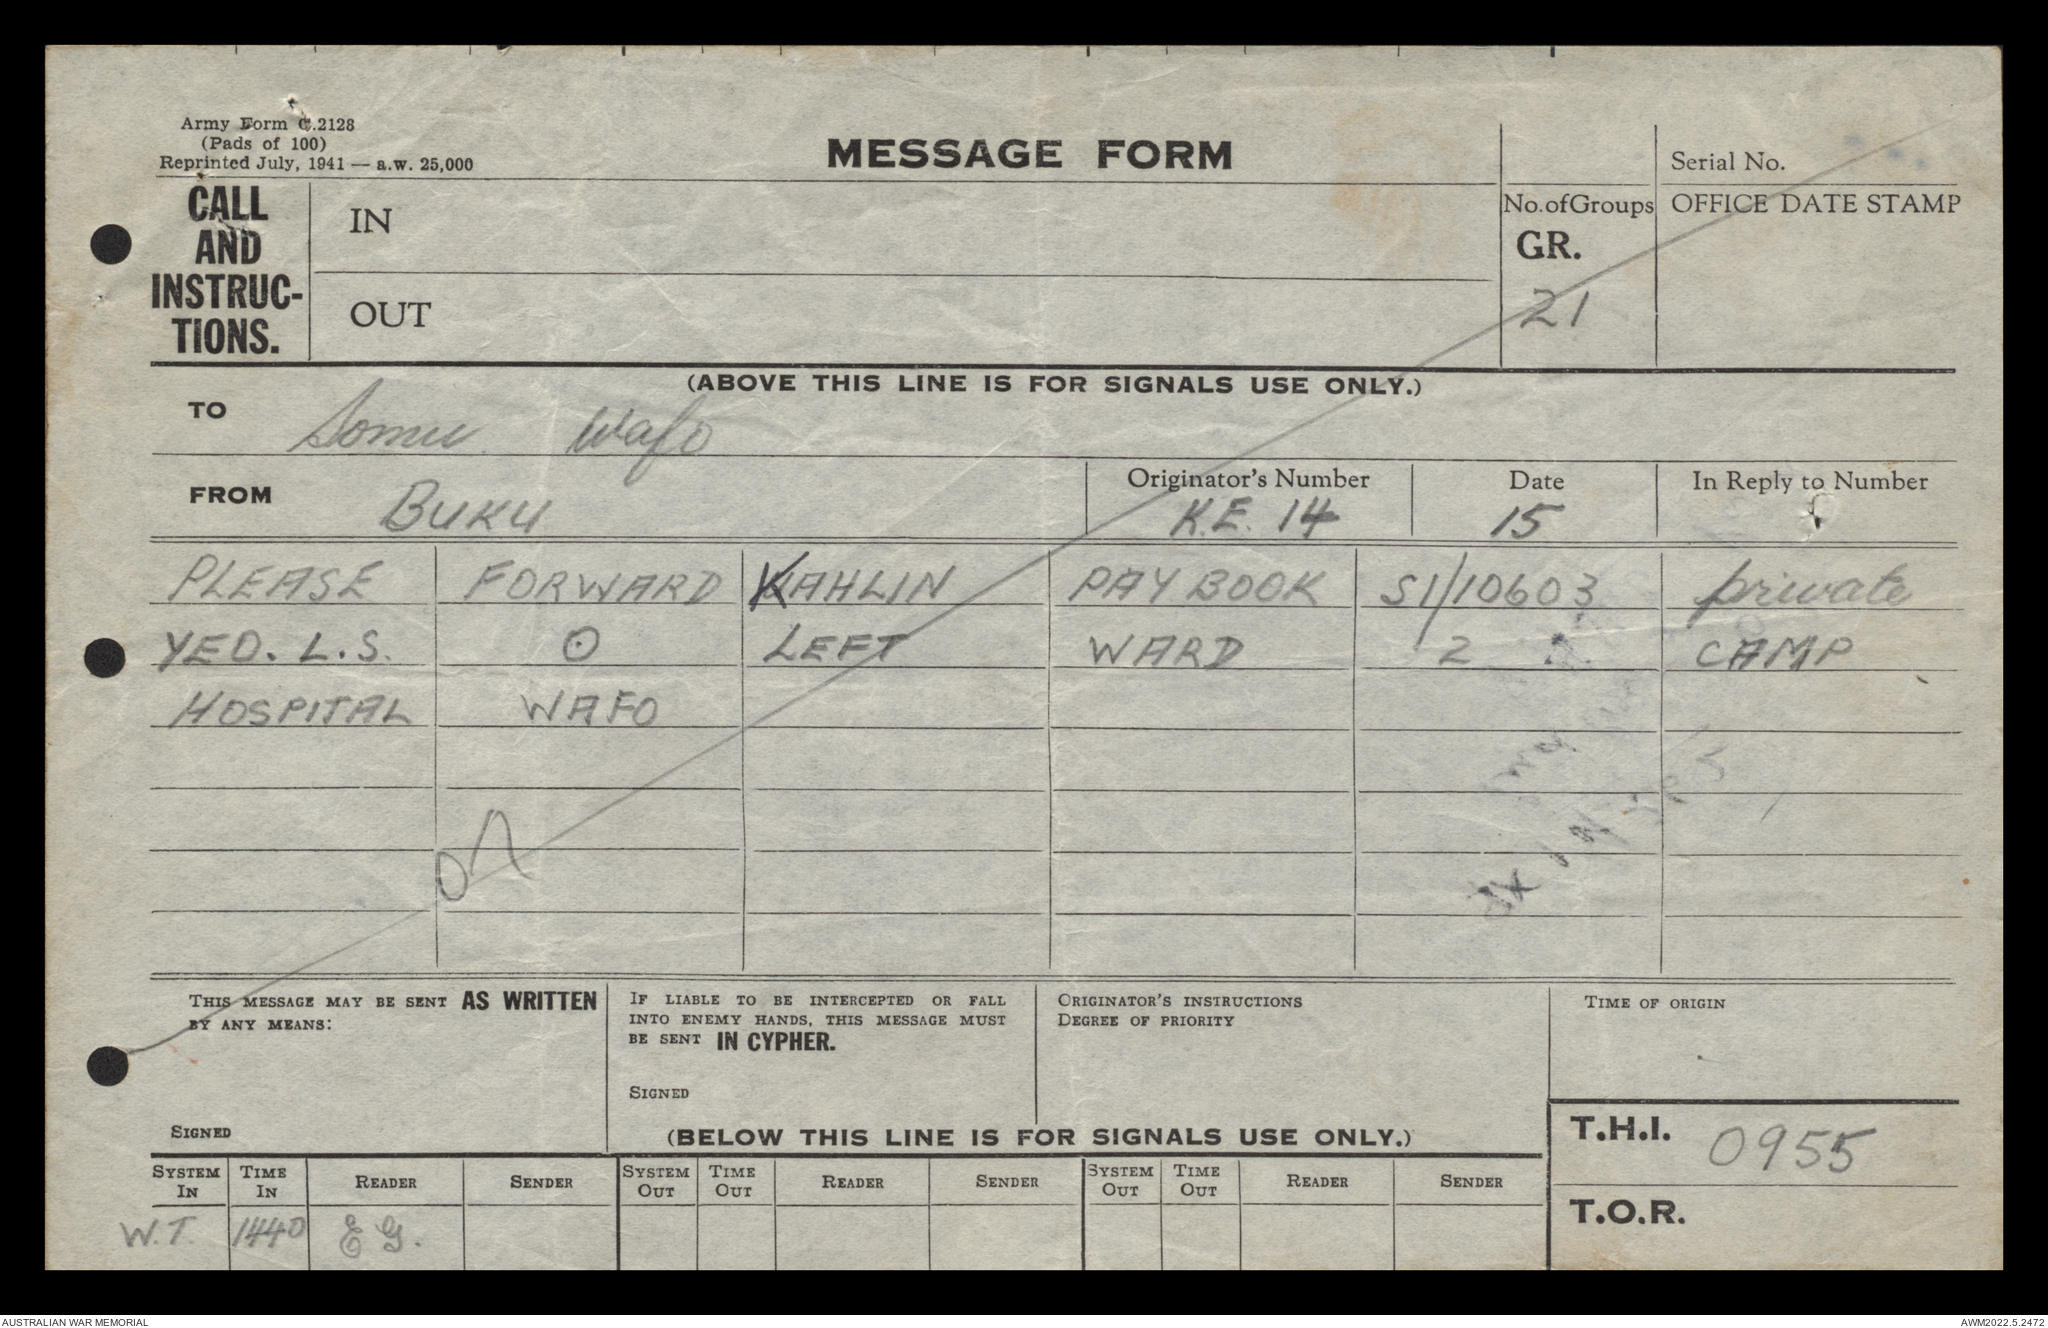 Army Form C.2128
(Pads of 100)
Reprinted July, 1941 — a.w. 25,000
MESSAGE FORM
Serial No.
CALL AND INSTRUC-TIONS.
IN
No. of Groups
GR.
21
OFFICE DATE STAMP
OUT
(ABOVE THIS LINE IS FOR SIGNALS USE ONLY.)
TO Somu Wafo
FROM BUKU
Originator's Number K.E. 14
Date 15
In Reply to Number
PLEASE FORWARD KAHLIN PAY BOOK S1/10603 private
YED. L.S. ⊙ LEFT WARD 2 CAMP
HOSPITAL WAFO
THIS MESSAGE MAY BE SENT AS WRITTEN
BY ANY MEANS:
SIGNED
IF LIABLE TO BE INTERCEPTED OR FALL
INTO ENEMY HANDS, THIS MESSAGE MUST
BE SENT IN CYPHER.
SIGNED
ORIGINATOR'S INSTRUCTIONS
DEGREE OF PRIORITY
TIME OF ORIGIN
(BELOW THIS LINE IS FOR SIGNALS USE ONLY.)
T.H.I. 0955
SYSTEM IN TIME IN READER SENDER SYSTEM OUT TIME OUT READER SENDER SYSTEM OUT TIME OUT READER SENDER
T.O.R.
W.T. 1440 E G.
AUSTRALIAN WAR MEMORIAL
AWM2022.5.2472